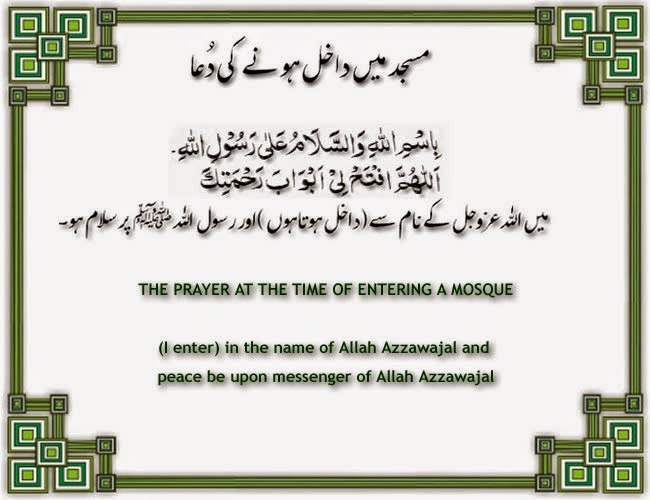 مسجد میں داخل ہونے کی دُعا
بِاسْمِ اللّٰهِ وَالسَّلَامُ عَلٰی رَسُوْلِ اللّٰهِ۔
اَللّٰهُمَّ افْتَحْ لِیْ اَبْوَابَ رَحْمَتِكَ
میں اللہ عزوجل کے نام سے (داخل ہوتاہوں) اور رسول اللہ ﷺ پر سلام ہو۔
THE PRAYER AT THE TIME OF ENTERING A MOSQUE
(I enter) in the name of Allah Azzawajal and
peace be upon messenger of Allah Azzawajal